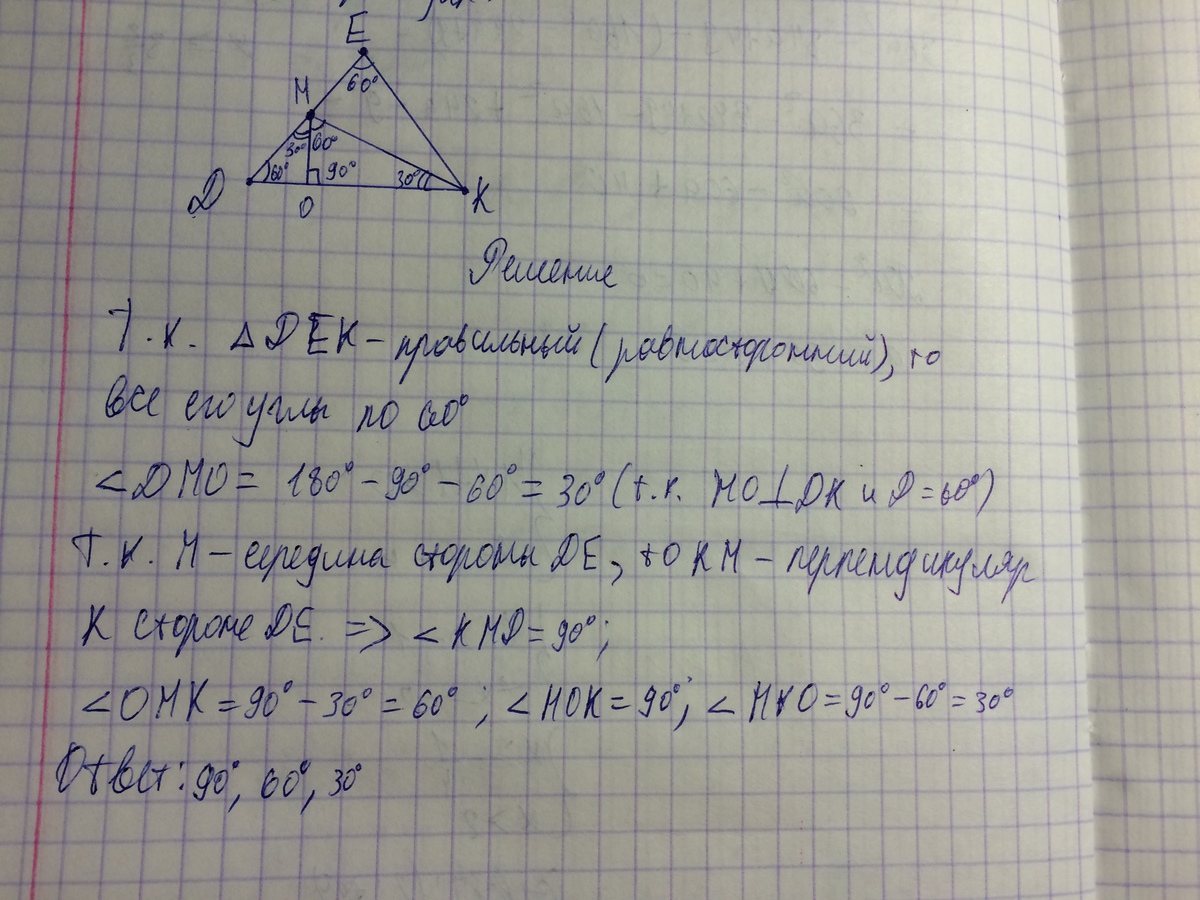 E
60°
M
30° 60°
60° 90° 30°
D O K
Решение
Т.к. △DEK – правильный (равносторонний), то
все его углы по 60°
∠DMO = 180° – 90° – 60° = 30° (т.к. MO⊥DK и D = 60°)
Т.к. M – середина стороны DE, то KM – перпендикуляр
к стороне DE. => ∠KMD = 90°;
∠OMK = 90° – 30° = 60°; ∠MOK = 90°; ∠MKO = 90° – 60° = 30°
Ответ: 90°, 60°, 30°